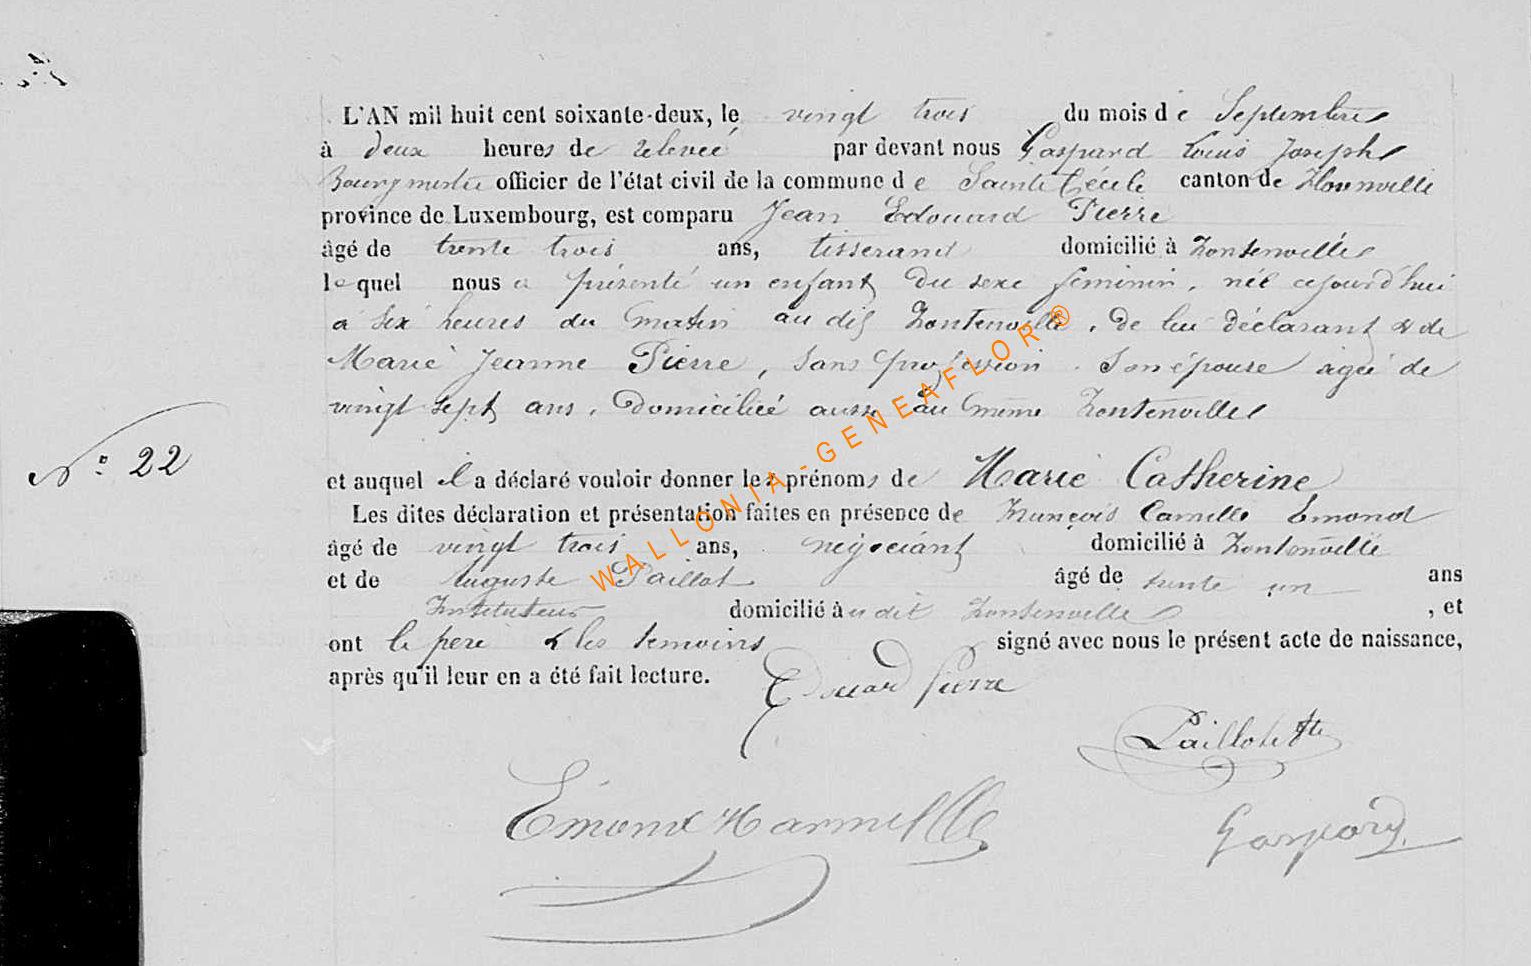 L'AN mil huit cent soixante-deux, le vingt trois du mois de Septembre
à deux heures de relevée par devant nous Gaspard Louis Joseph
Bourgmestre officier de l'état civil de la commune de Sainte Cécile canton de Florenville
province de Luxembourg, est comparu Jean Edouard Pierre
âgé de trente trois ans, tisserand domicilié à Fontenoille
lequel nous a présenté un enfant du sexe féminin, née cejourd'hui
à six heures du matin au dit Fontenoille, de lui déclarant & de
Marie Jeanne Pierre, sans profession son épouse agée de
vingt sept ans, domiciliée aussi au même Fontenoille
N° 22
et auquel il a déclaré vouloir donner les prénoms de Marie Catherine
Les dites déclaration et présentation faites en présence de François Camille Émond
âgé de vingt trois ans, négociant domicilié à Fontenoille
et de Auguste Paillot âgé de trente un ans
Instituteur domicilié au dit Fontenoille, et
ont le père & les témoins signé avec nous le présent acte de naissance,
après qu'il leur en a été fait lecture. Edouard Pierre
Émond
Gaspard
WALLONIA-GENEAFLOR®